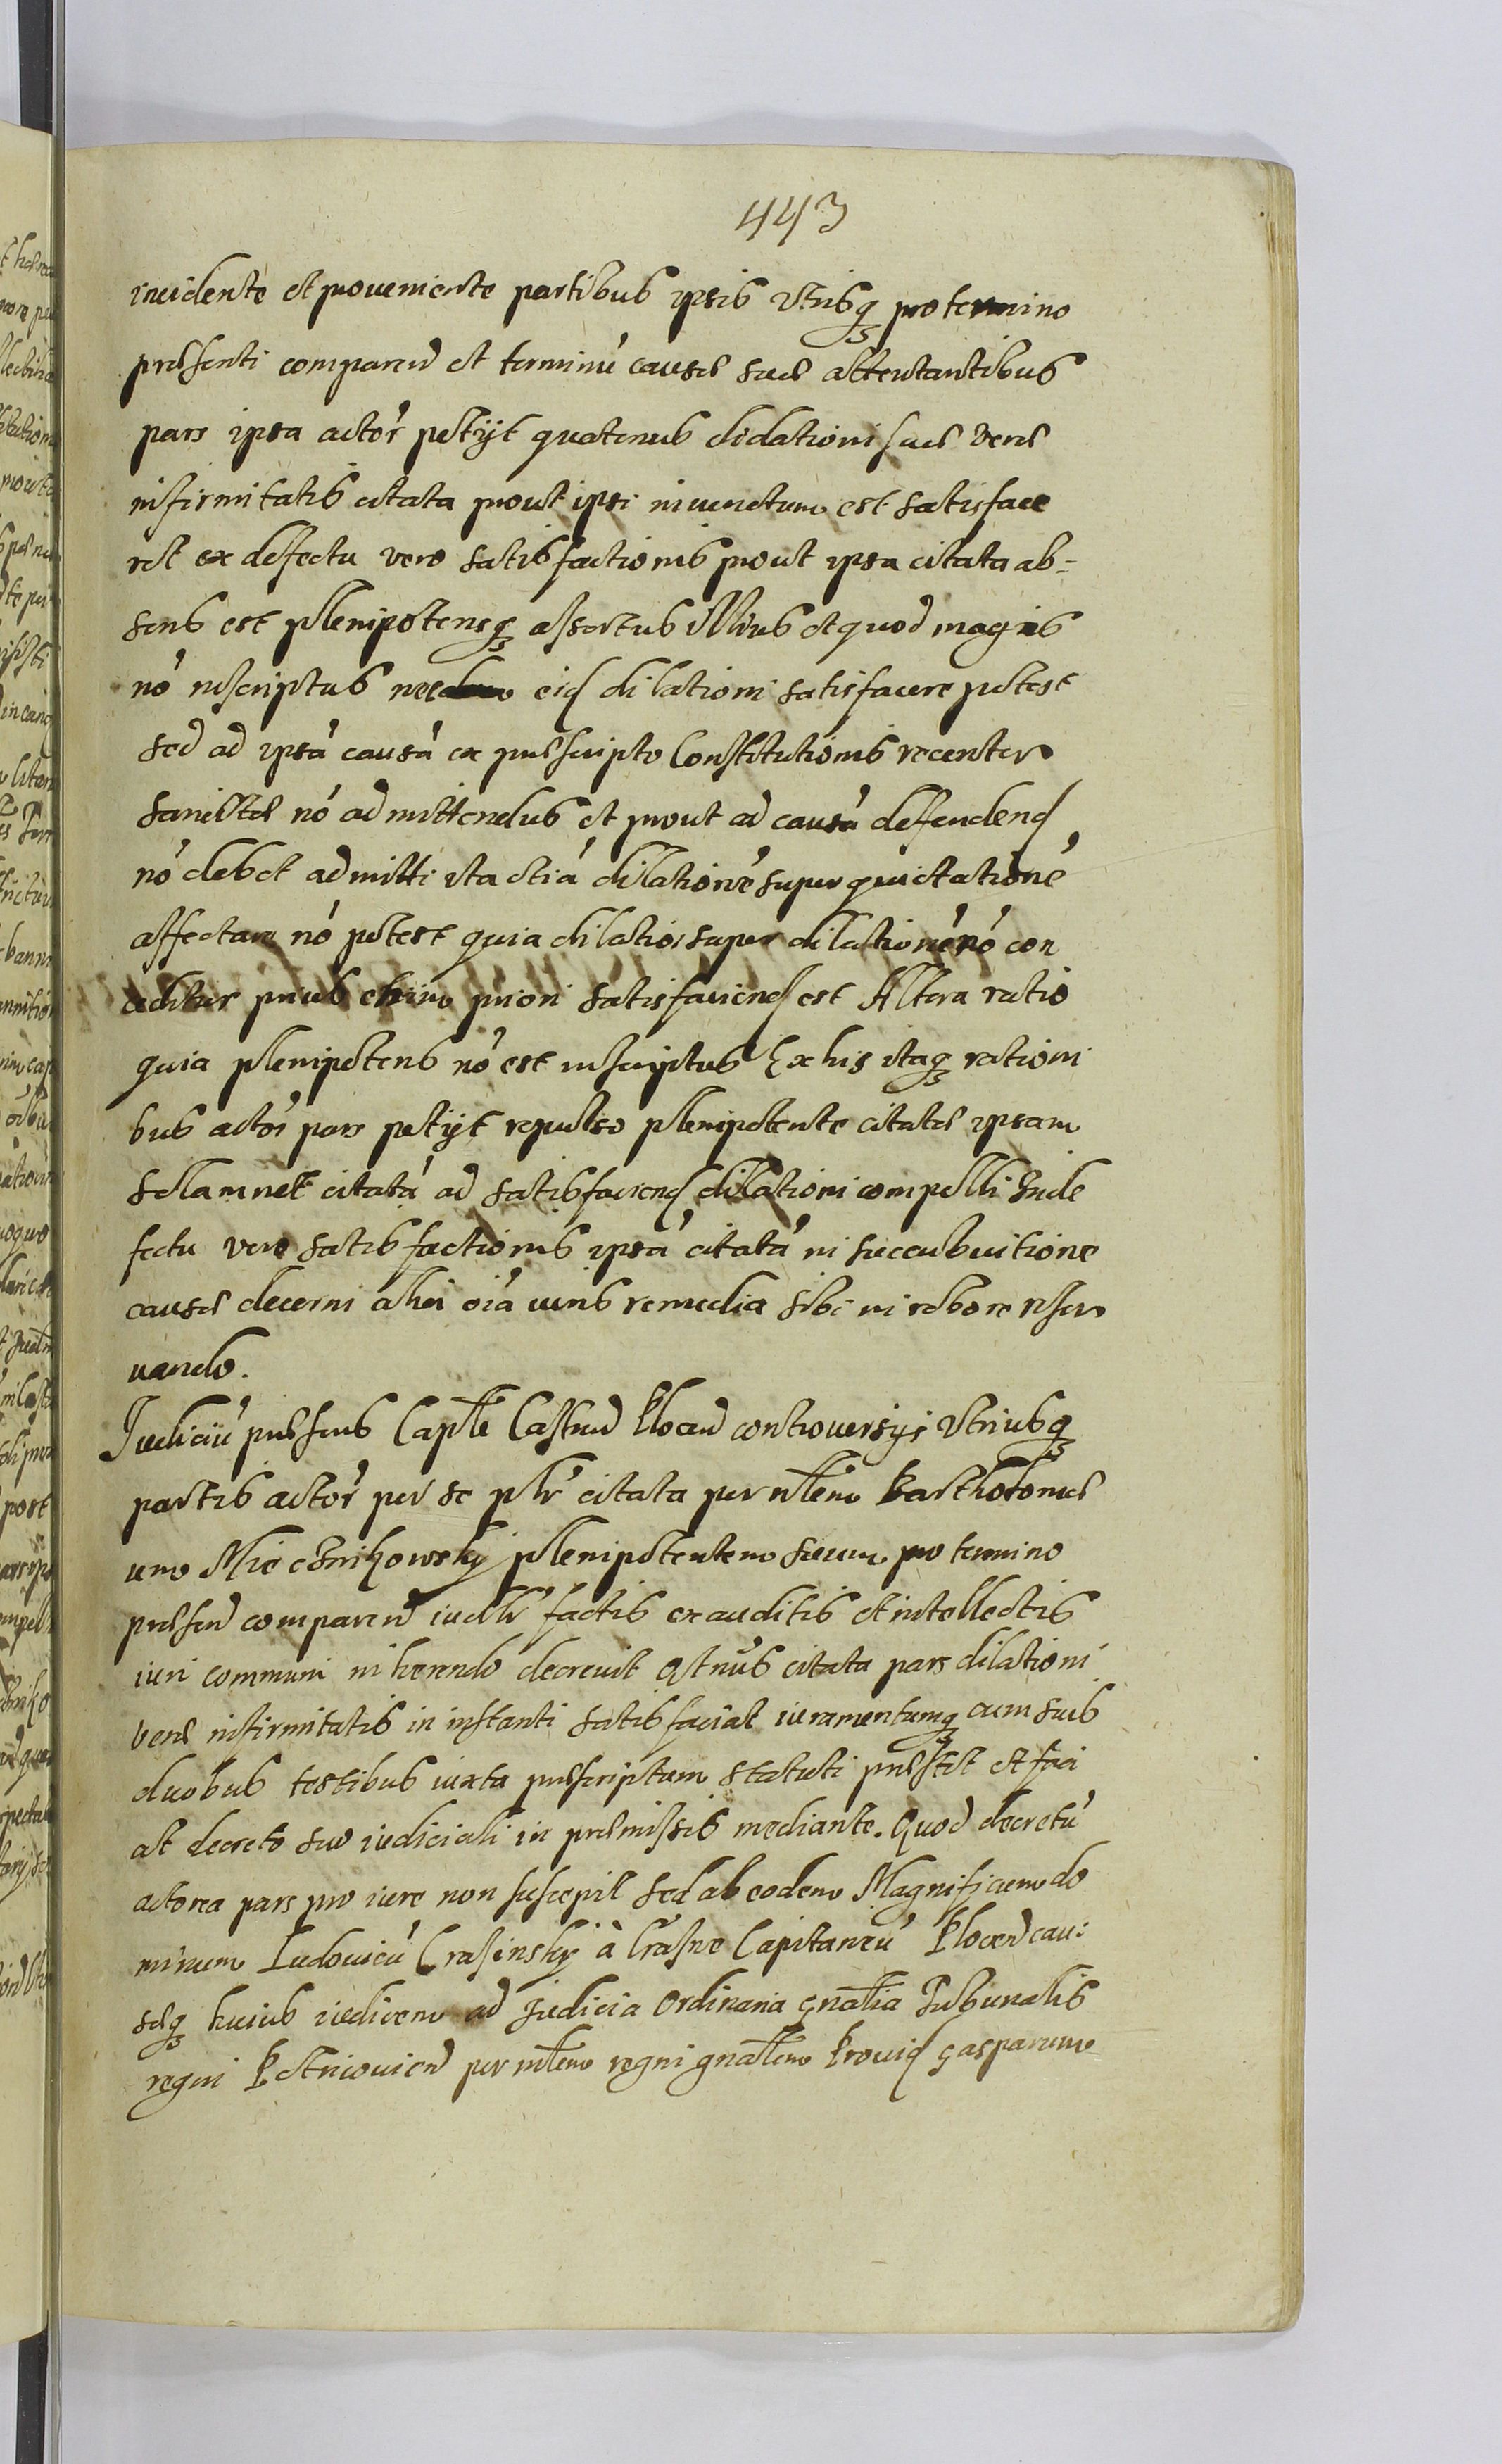 443
incidente et proveniente partibus ipsis utrisq pro termino
praesenti comparen et terminũ causae suae attentantibus
pars ipsa actor petijt quatenus didationi suae verae
infirmitatis citata prout ipsi iniunctum est satisface
ret ex defectu vero satisfactionis prout ipsa citata ab=
sens est plenipotensq assertus illius et quod magis
nõ inscriptus nec eid dilationi satisfacere potest
sed ad ipsã causã ex praescripto Constitutionis recenter
sancitae nõ admittendus et prout ad causã defendend
nõ debet admitti ita etiã dilationẽ super quietationẽ
affectare nõ potest quia dilatio super dilationẽ nõ con
ceditur prius enim priori satisfaciend est Altera ratio
quia plenipotens nõ est inscriptus Ex his itaq rationi
bus actor pars petijt repulso plenipotente citatae ipsam
solam citatã ad satisfaciend dilationi compelli In de
fectu vero satisfactionis ipsã citatã in succubuitione
causae decerni alia oĩa iuris remedia sibi in robore reser
vando.
Iudiciũ praesens Caple Castren Plocen controversijs utriusq
partis actor per se plr citata per nblem Bartholomae
um Miecznikowsky plenipotentem suum pro termino
praesen comparen iudlr factis exauditis et intellectis
iuri communi inherendo decrevit Qtnus citata pars dilationi
verae infirmitatis in instanti satisfaciat iuramentumq cum suis
duobus testibus iuxta praescriptum statuti praestet et faci
at decreto suo iudiciali in praemissis mediante. Quod decretũ
actorea pars pro iure non suscepit sed ab eodem Magnificum do
minum Ludovicũ Crasinsky à Crasne Capitaneũ Plocen cau:
saeq huius iudicem ad Iudicia Ordinaria gnãlia Tribunalis
regni Petricovien per mlem regni gnãlem Provid Gasparum